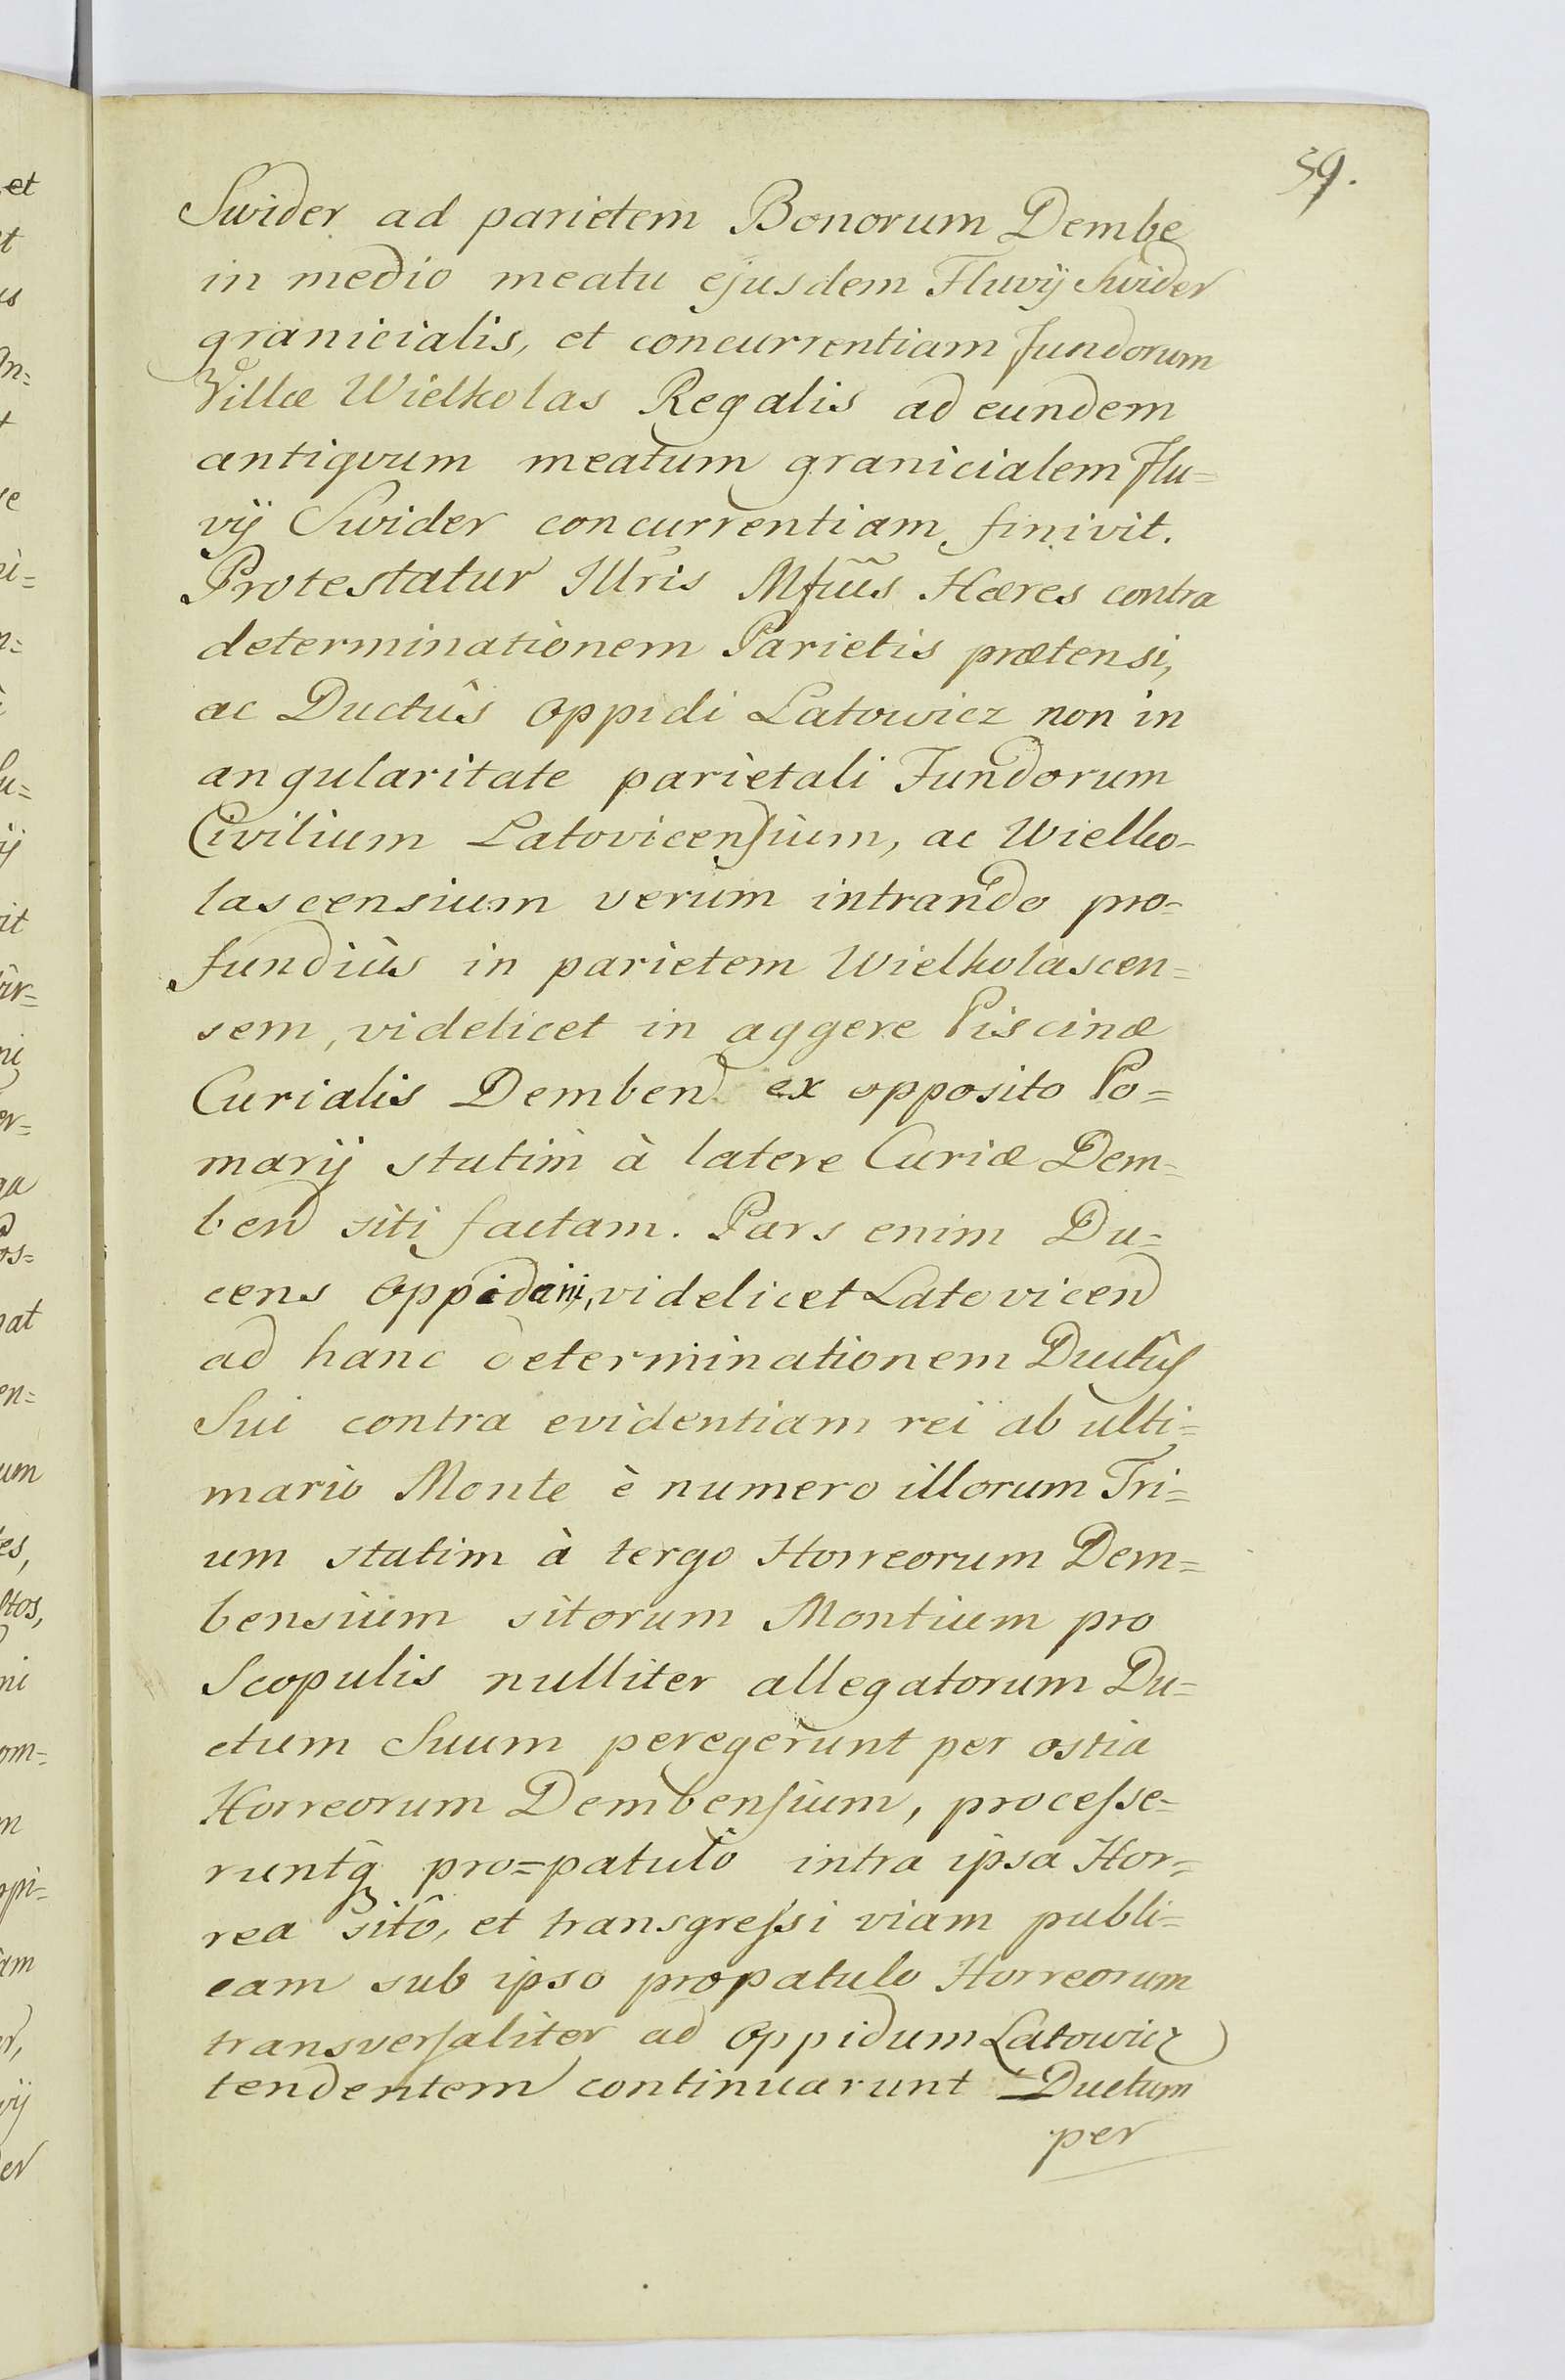 59.
Swider ad parietem Bonorum Dembe
in medio meatu ejusdem Fluvÿ Swider
granicialis, et concurrentiam fundorum
Villæ Wielkolas Regalis ad eundem
antiqvum meatum granicialem Flu=
vÿ Swider concurrentiam finivit.
Protestatur Illris Mfũũs Hæres contra
determinationem Parietis prætensi,
ac Ductûs Oppidi Latowicz non in
angularitate parietali Fundorum
Civilium Latovicensium, ac Wielko-
lascensium verum intrando pro-
fundiùs in parietem Wielkolascen=
sem, videlicet in aggere Piscinæ
Curialis Demben ex opposito Po=
marij statim à latere Curiæ Dem-
ben siti factam. Pars enim Du=
cens Oppidani, videlicet Latovicen
ad hanc determinationem Ductûs
Sui contra evidentiam rei ab ulti=
mario Monte è numero illorum Tri=
um statim à tergo Horreorum Dem=
bensium sitorum Montium pro
Scopulis nulliter allegatorum Du=
ctum Suum peregerunt per ostia
Horreorum Dembensium, processe=
runtq pro=patulo intra ipsa Hor=
rea sitô, et transgressi viam publi=
cam sub ipso propatulo Horreorum
transversaliter ad Oppidum Latowicz
tendentem continuarunt Ductum
per